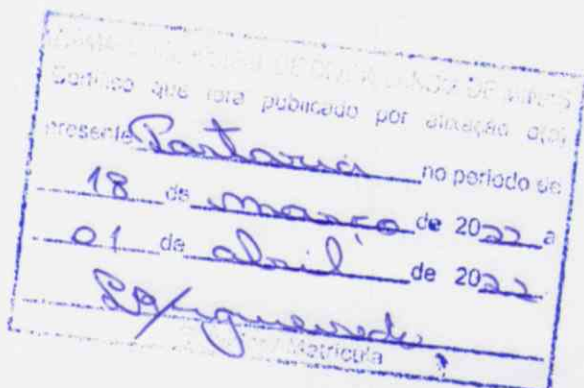 Certifico que fora publicado por afixação o(a)
presente Portaria no período de
18 de março de 2022 a
01 de abril de 2022
Matrícula